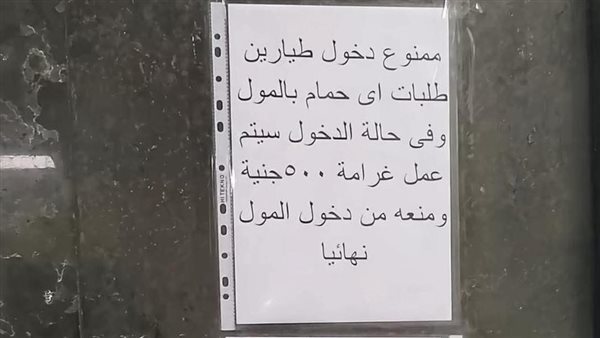 ممنوع دخول طيارين
طلبات اى حمام بالمول
وفى حالة الدخول سيتم
عمل غرامة ٥٠٠جنية
ومنعه من دخول المول
نهائيا
HITEKNO